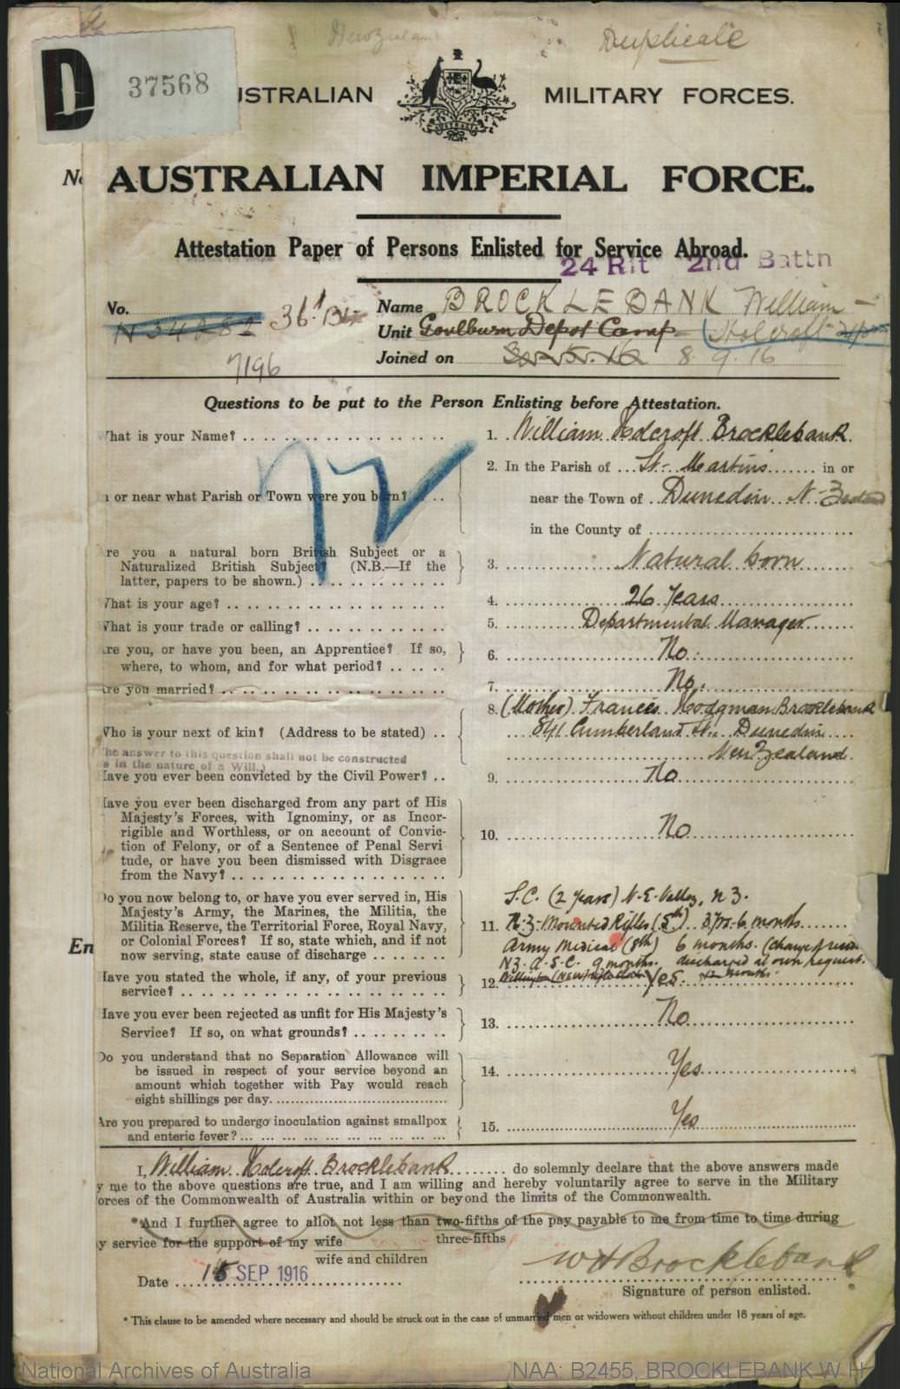 New Zealand
Duplicate
D 37568
USTRALIAN MILITARY FORCES.
AUSTRALIAN IMPERIAL FORCE.
Attestation Paper of Persons Enlisted for Service Abroad.
24 Rft 2nd Battn
No. Name BROCKLEBANK William
Unit Goulburn Depot Camp
7196 Joined on 8.9.16
Questions to be put to the Person Enlisting before Attestation.
What is your Name? 1. William Holcroft Brocklebank
2. In the Parish of St. Martins in or
or near what Parish or Town were you born? near the Town of Dunedin N-Zealand
in the County of
re you a natural born British Subject or a
Naturalized British Subject? (N.B.—If the 3. Natural born
latter, papers to be shown.)
What is your age? 4. 26 Years
What is your trade or calling? 5. Departmental Manager
re you, or have you been, an Apprentice? If so, 6. No
where, to whom, and for what period?
Are you married? 7. No.
8. (Mother) Frances Hodgman Brocklebank
Who is your next of kin? (Address to be stated) Cumberland St. Dunedin
New Zealand
he answer to this question shall not be constructed
s in the nature of a Will.)
Have you ever been convicted by the Civil Power? 9. No
Have you ever been discharged from any part of His
Majesty's Forces, with Ignominy, or as Incor-
rigible and Worthless, or on account of Convic- 10. No
tion of Felony, or of a Sentence of Penal Servi
tude, or have you been dismissed with Disgrace
from the Navy?
Do you now belong to, or have you ever served in, His S.C. (2 years) N.E. Valley, N Z.
Majesty's Army, the Marines, the Militia, the
Militia Reserve, the Territorial Force, Royal Navy, 11. N.Z. Mounted Rifles (5th) 3 yrs. 6 months.
or Colonial Forces? If so, state which, and if not Army Medical (8th) 6 months.
now serving, state cause of discharge N.Z. A.S.C. 9 months. discharged at own request.
Have you stated the whole, if any, of your previous 12. Yes
service?
Have you ever been rejected as unfit for His Majesty's 13. No
Service? If so, on what grounds?
Do you understand that no Separation Allowance will
be issued in respect of your service beyond an 14. Yes
amount which together with Pay would reach
eight shillings per day.
Are you prepared to undergo inoculation against smallpox 15. Yes
and enteric fever?
En
I, William Holcroft Brocklebank do solemnly declare that the above answers made
y me to the above questions are true, and I am willing and hereby voluntarily agree to serve in the Military
orces of the Commonwealth of Australia within or beyond the limits of the Commonwealth.
*And I further agree to allot not less than two-fifths of the pay payable to me from time to time during
three-fifths
y service for the support of my wife
wife and children
Date 15 SEP 1916 W H Brocklebank
Signature of person enlisted.
* This clause to be amended where necessary and should be struck out in the case of unmarried men or widowers without children under 18 years of age.
National Archives of Australia NAA: B2455, BROCKLEBANK W H